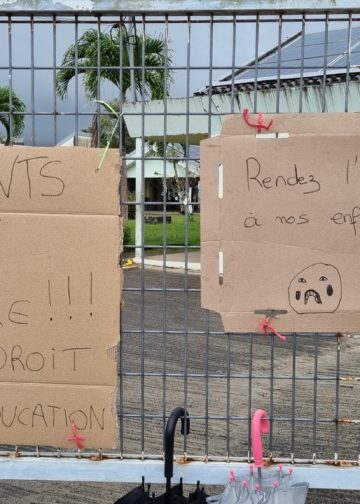 NTS
RE!!!
DROIT
UCATION
Rendez !!
à nos enf